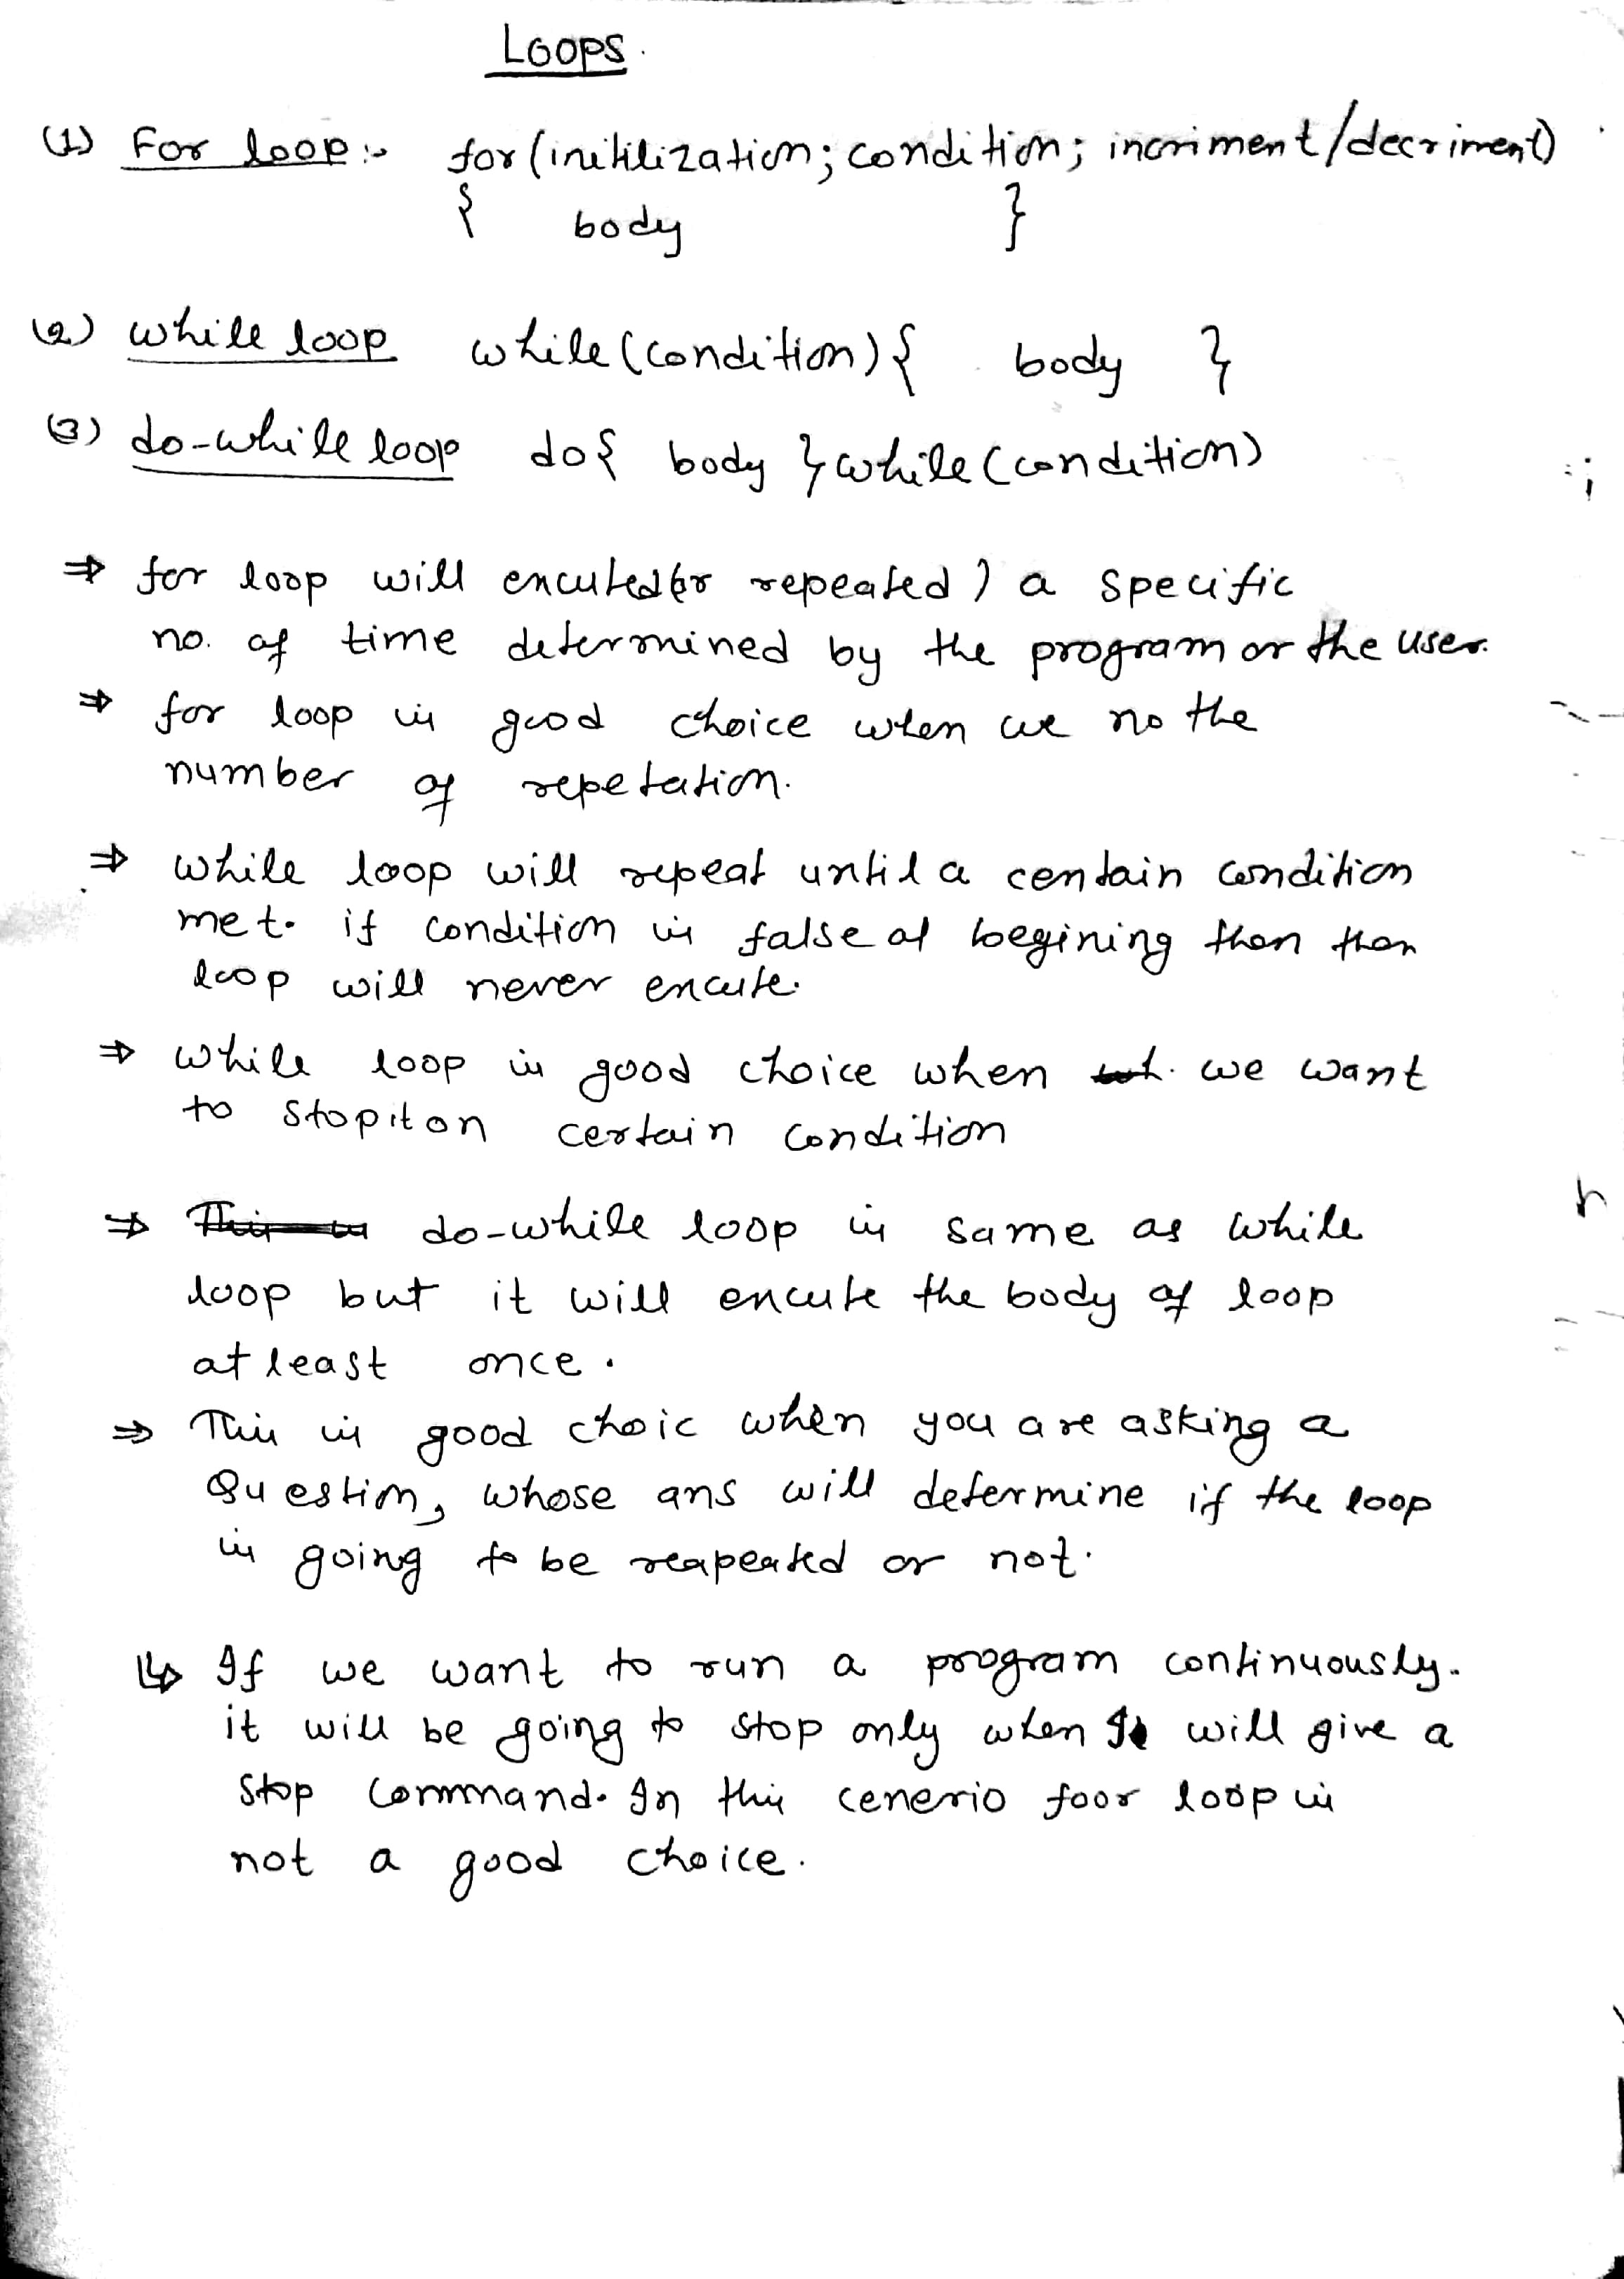 Loops.
(1) For loop:- for(initilization; condition; incriment/decriment)
{ body }
(2) while loop while(condition){ body }
(3) do-while loop do{ body }while(condition)
⇒ for loop will encuted(or repeated) a specific
no. of time determined by the program or the user.
⇒ for loop is good choice when we no the
number of repetation.
⇒ while loop will repeat until a centain condition
met. if condition is false at begining then then
loop will never encute.
⇒ while loop is good choice when we want
to stop it on certain condition
⇒ This is do-while loop is same as while
loop but it will encute the body of loop
at least once.
⇒ This is good choic when you are asking a
Question, whose ans will determine if the loop
is going to be reapeated or not.
↳ If we want to run a program continuously.
it will be going to stop only when I will give a
stop command. In this cenerio foor loop is
not a good choice.